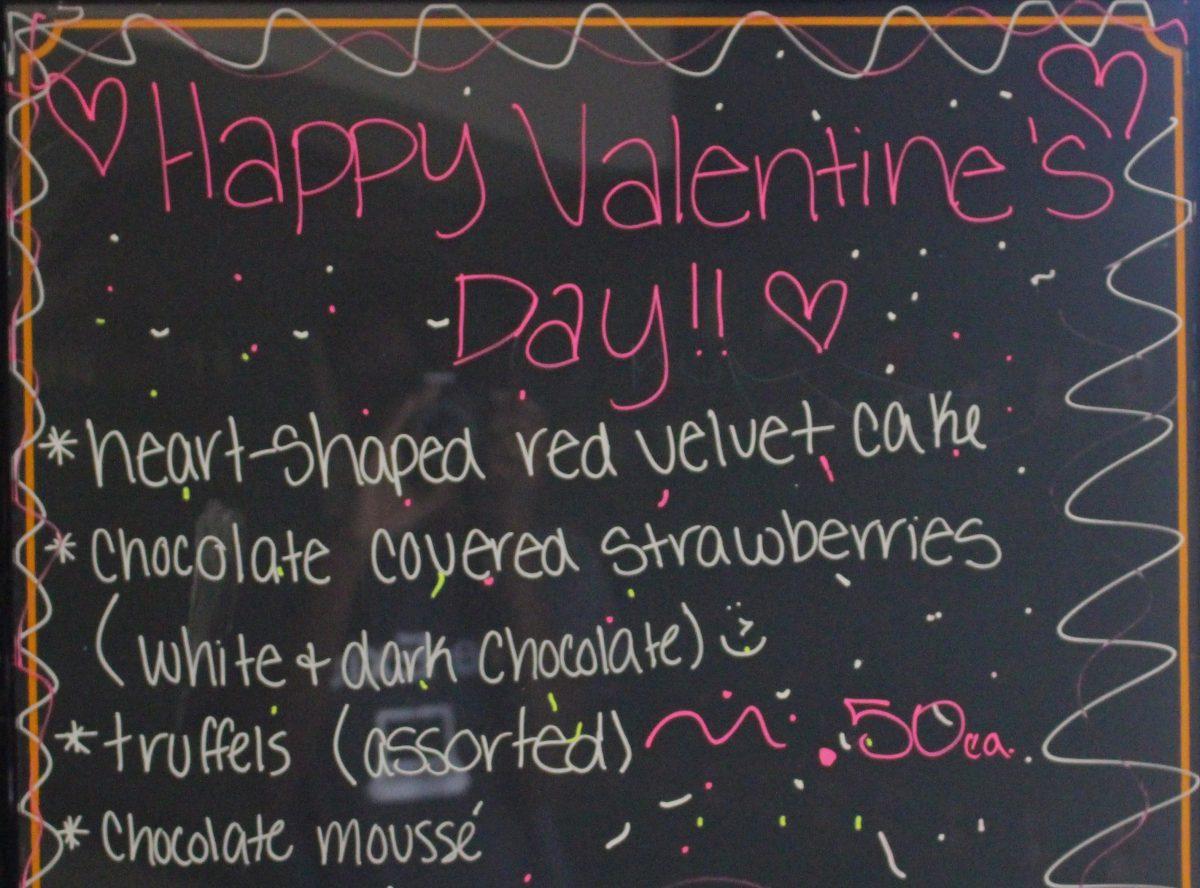 Happy Valentine's
Day!!
*heart-shaped red velvet cake
*chocolate covered strawberries
(white + dark chocolate)
*truffels (assorted) .50 ea.
*chocolate moussé